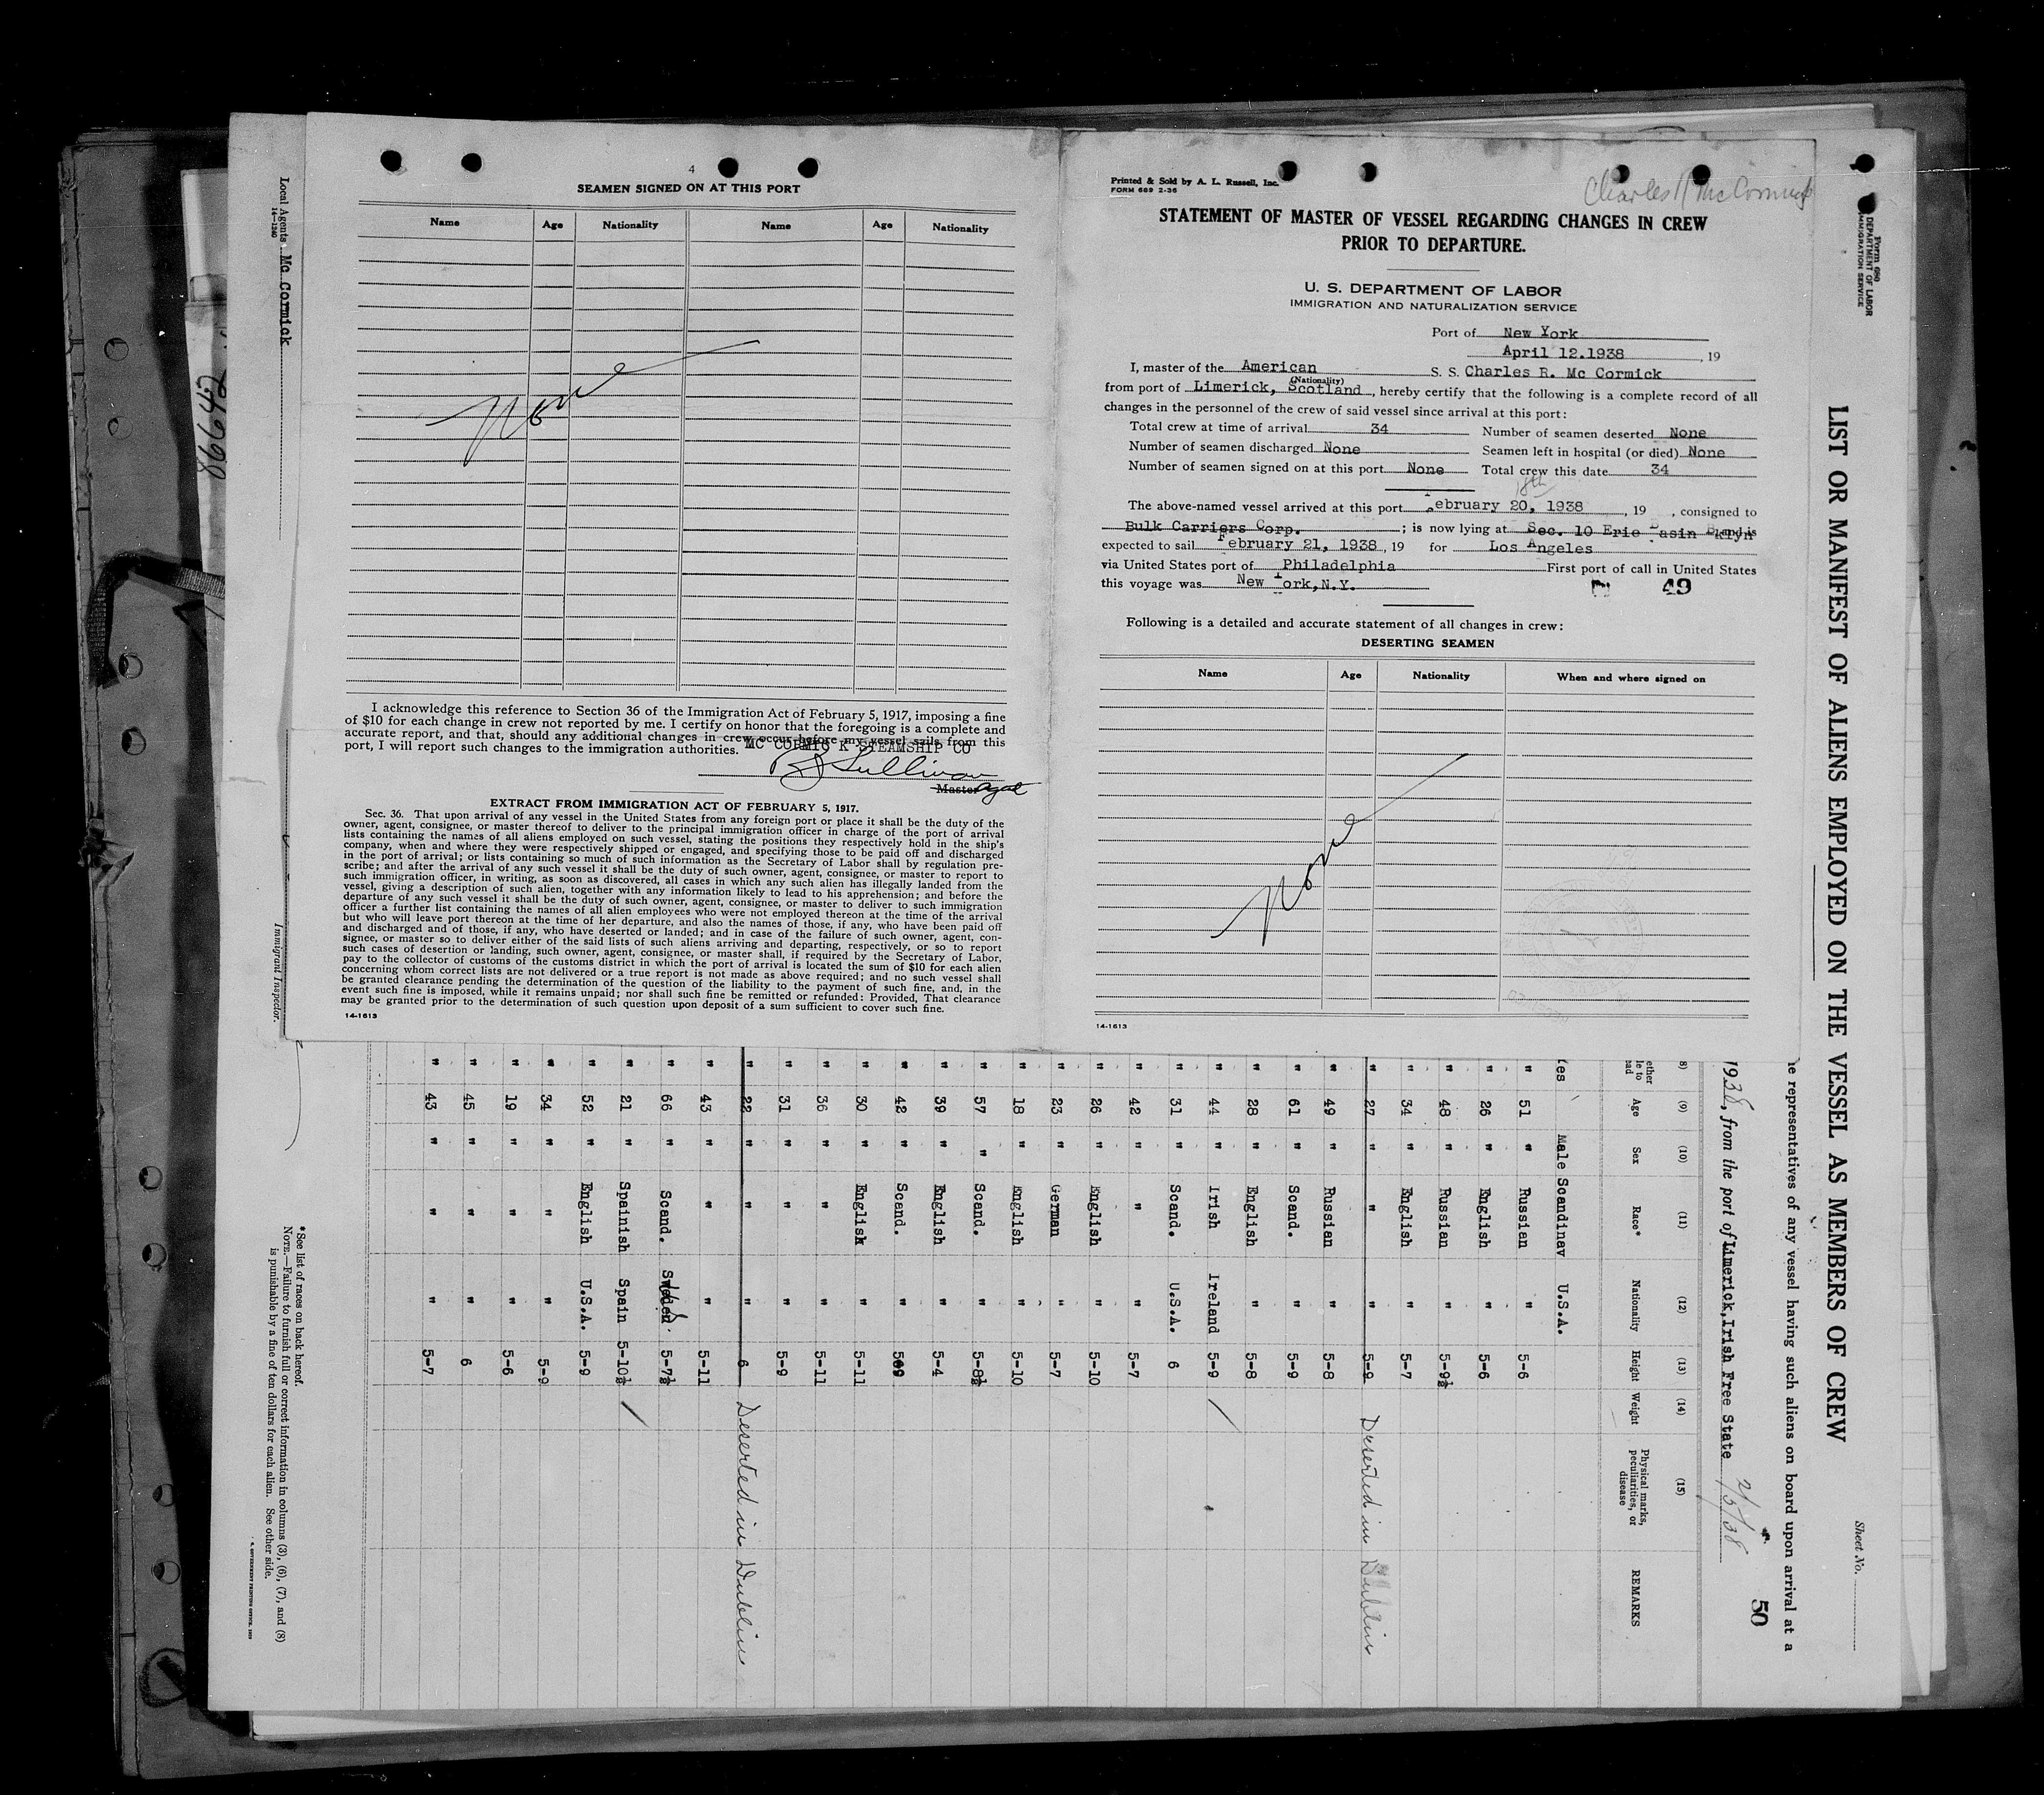 4
SEAMEN SIGNED ON AT THIS PORT
Name Age Nationality Name Age Nationality
None
I acknowledge this reference to Section 36 of the Immigration Act of February 5, 1917, imposing a fine
of $10 for each change in crew not reported by me. I certify on honor that the foregoing is a complete and
accurate report, and that, should any additional changes in crew occur before my vessel sails from this
port, I will report such changes to the immigration authorities.
MC CORMIC K STEAMSHIP CO
Sullivan
Master Agent
EXTRACT FROM IMMIGRATION ACT OF FEBRUARY 5, 1917.
Sec. 36. That upon arrival of any vessel in the United States from any foreign port or place it shall be the duty of the
owner, agent, consignee, or master thereof to deliver to the principal immigration officer in charge of the port of arrival
lists containing the names of all aliens employed on such vessel, stating the positions they respectively hold in the ship's
company, when and where they were respectively shipped or engaged, and specifying those to be paid off and discharged
in the port of arrival; or lists containing so much of such information as the Secretary of Labor shall by regulation pre-
scribe; and after the arrival of any such vessel it shall be the duty of such owner, agent, consignee, or master to report to
such immigration officer, in writing, as soon as discovered, all cases in which any such alien has illegally landed from the
vessel, giving a description of such alien, together with any information likely to lead to his apprehension; and before the
departure of any such vessel it shall be the duty of such owner, agent, consignee, or master to deliver to such immigration
officer a further list containing the names of all alien employees who were not employed thereon at the time of the arrival
but who will leave port thereon at the time of her departure, and also the names of those, if any, who have been paid off
and discharged and of those, if any, who have deserted or landed; and in case of the failure of such owner, agent, con-
signee, or master so to deliver either of the said lists of such aliens arriving and departing, respectively, or so to report
such cases of desertion or landing, such owner, agent, consignee, or master shall, if required by the Secretary of Labor,
pay to the collector of customs of the customs district in which the port of arrival is located the sum of $10 for each alien
concerning whom correct lists are not delivered or a true report is not made as above required; and no such vessel shall
be granted clearance pending the determination of the question of the liability to the payment of such fine, and, in the
event such fine is imposed, while it remains unpaid; nor shall such fine be remitted or refunded: Provided, That clearance
may be granted prior to the determination of such question upon deposit of a sum sufficient to cover such fine.
14-1613
Printed & Sold by A. L. Russell, Inc.
FORM 689 2-36
Charles R McCormick
STATEMENT OF MASTER OF VESSEL REGARDING CHANGES IN CREW
PRIOR TO DEPARTURE.
U. S. DEPARTMENT OF LABOR
IMMIGRATION AND NATURALIZATION SERVICE
Port of New York
April 12.1938, 19
I, master of the American S. S. Charles R. Mc Cormick
(Nationality)
from port of Limerick, Scotland, hereby certify that the following is a complete record of all
changes in the personnel of the crew of said vessel since arrival at this port:
Total crew at time of arrival 34 Number of seamen deserted None
Number of seamen discharged None Seamen left in hospital (or died) None
Number of seamen signed on at this port None Total crew this date 34
18th
The above-named vessel arrived at this port February 20, 1938, 19 , consigned to
Bulk Carriers Corp. ; is now lying at Sec. 10 Erie Basin Bklyn and is
expected to sail February 21, 1938, 19 for Los Angeles
via United States port of Philadelphia First port of call in United States
this voyage was New York,N.Y.
49
Following is a detailed and accurate statement of all changes in crew:
DESERTING SEAMEN
Name Age Nationality When and where signed on
None
14-1613
Form 680
DEPARTMENT OF LABOR
IMMIGRATION SERVICE
Sheet No.
LIST OR MANIFEST OF ALIENS EMPLOYED ON THE VESSEL AS MEMBERS OF CREW
representatives of any vessel having such aliens on board upon arrival at a
50
1938, from the port of Limerick,Irish Free State 2/5/38
(8) (9) (10) (11) (12) (13) (14) (15)
Age Sex Race* Nationality Height Weight Physical marks, peculiarities, or disease REMARKS
Male Scandinav U.S.A.
" 51 " Russian " 5-6
" 26 " English " 5-6
" 48 " Russian " 5-9½
" 34 " English " 5-7
" 27 " " " 5-9 Deserted in Dublin
" 49 " Russian " 5-8
" 61 " Scand. " 5-9
" 28 " English " 5-8
" 44 " Irish Ireland 5-9
" 31 " Scand. U.S.A. 6
" 42 " " " 5-7
" 26 " English " 5-10
" 23 " German " 5-7
" 18 " English " 5-10
" 57 " Scand. " 5-8½
" 39 " English " 5-4
" 42 " Scand. " 5-9
" 30 " English " 5-11
" 36 " " " 5-11
" 31 " " " 5-9
" 22 " " " 6 Deserted in Dublin
" 43 " " " 5-11
" 66 " Scand. Sweden 5-7½
" 21 " Spainish Spain 5-10½
" 52 " English U.S.A. 5-9
" 34 " " " 5-9
" 19 " " " 5-6
" 45 " " " 6
" 43 " " " 5-7
*See list of races on back hereof.
NOTE.—Failure to furnish full or correct information in columns (3), (6), (7), and (8)
is punishable by a fine of ten dollars for each alien. See other side.
Local Agents Mc Cormick
14-1240
Immigrant Inspector.
86642